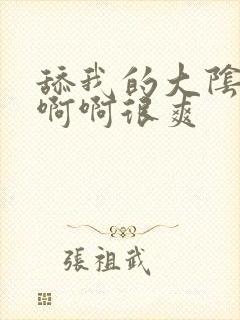 舔我的大陰
啊啊很爽
張祖武